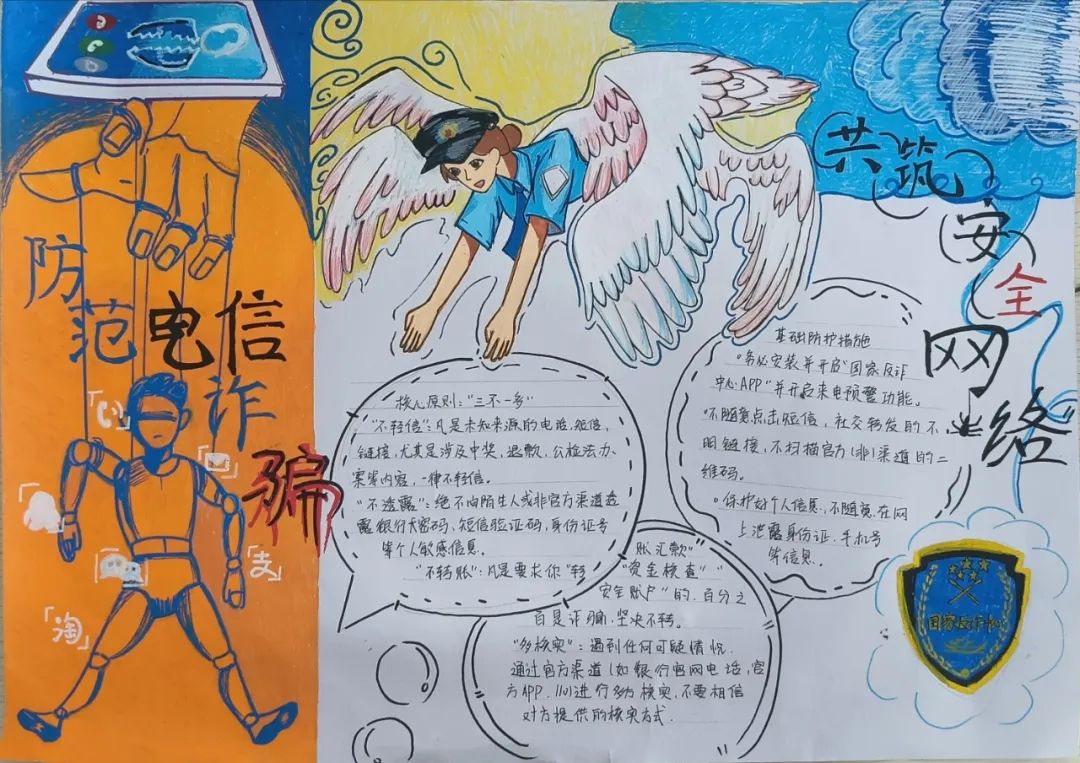 防范电信诈骗
共筑安全网络
「支」
「淘」
核心原则:"三不一多"
"不轻信":凡是未知来源的电话,短信,
链接,尤其是涉及中奖,退款,公检法办
案等内容,一律不轻信。
"不透露":绝不向陌生人或非官方渠道透
露银行卡密码,短信验证码,身份证号
等个人敏感信息。
"不转账":凡是要求你"转
账汇款"
"资金核查""
安全账户"的,百分之
百是诈骗,坚决不转。
"多核实":遇到任何可疑情况,
通过官方渠道(如银行官网电话,官
方APP,110)进行多方核实,不要相信
对方提供的核实方式.
基础防护措施
°务必安装并开启"国家反诈
中心APP"并开启来电预警功能。
°不随意点击短信,社交转发的不
明链接,不扫描官方(非)渠道的二
维码。
°保护好个人信息,不随意在网
上泄露身份证.手机号
等信息。
国家反诈中心